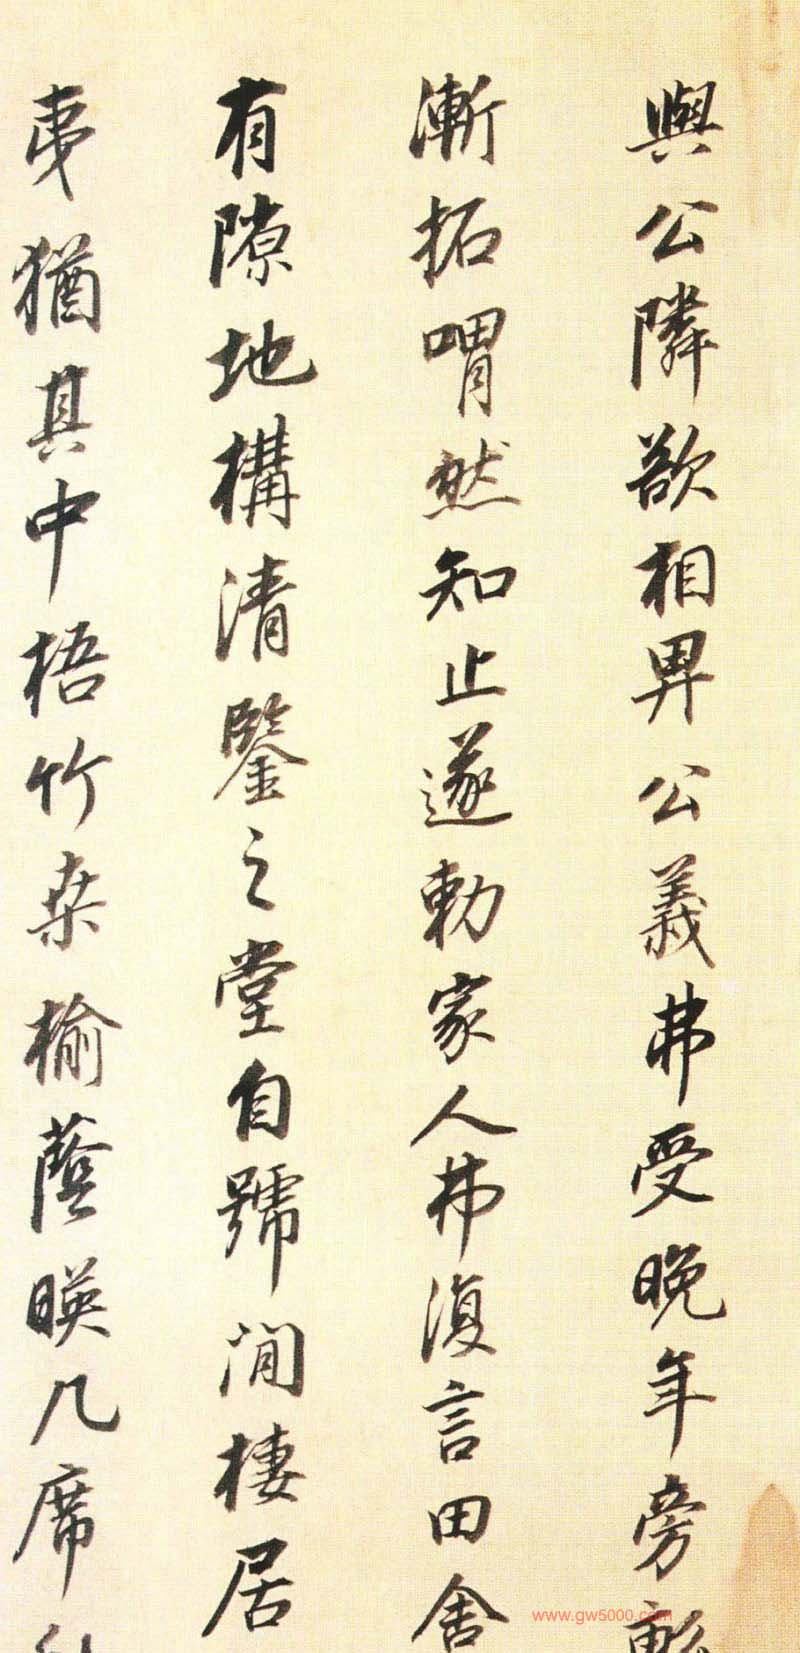 與公隣欲相畀公義弗受晚年旁
漸拓喟然知止遂勅家人弗復言田舍
有隙地構清鑒之堂自號閒棲居
夷猶其中梧竹桑榆蔭暎几席
www.gw5000.com